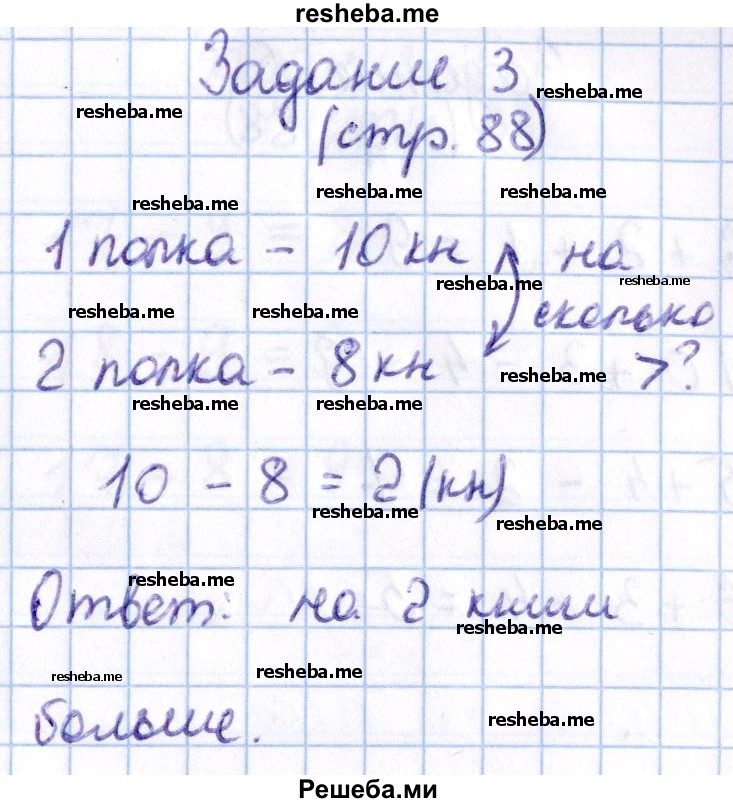 resheba.me
Задание 3 resheba.me
resheba.me
(стр. 88)
resheba.me resheba.me resheba.me
1 полка – 10 кн на
resheba.me resheba.me
resheba.me resheba.me
сколько
2 полка – 8 кн resheba.me >?
resheba.me resheba.me
10 – 8 = 2 (кн)
resheba.me resheba.me
resheba.me
Ответ: на 2 книги
resheba.me
resheba.me resheba.me
больше. resheba.me
Решеба.ми